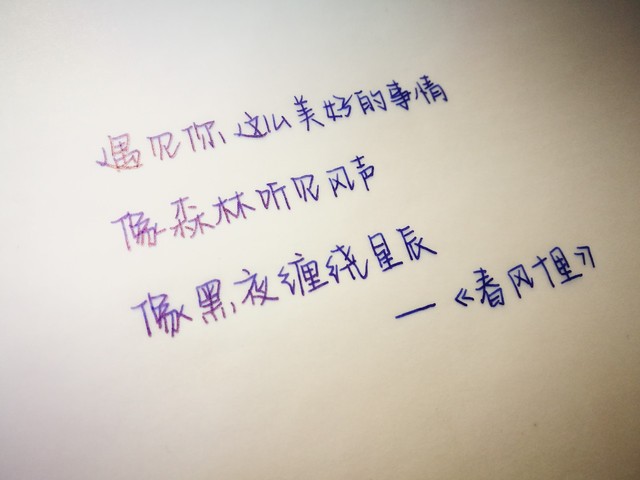 遇见你这么美好的事情
像森林听见风声
像黑夜缠绕星辰
—《春风十里》